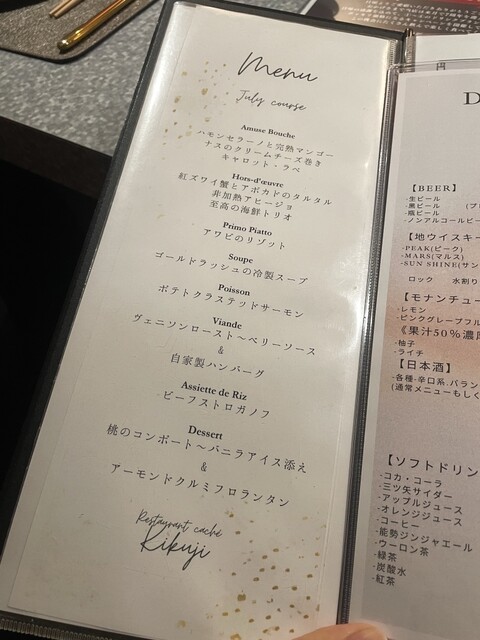 Menu
July course
Amuse Bouche
ハモンセラーノと完熟マンゴー
ナスのクリームチーズ巻き
キャロット・ラペ
Hors-d'œuvre
紅ズワイ蟹とアボカドのタルタル
非加熱アヒージョ
至高の海鮮トリオ
Primo Piatto
アワビのリゾット
Soupe
ゴールドラッシュの冷製スープ
Poisson
ポテトクラステッドサーモン
Viande
ヴェニソンロースト〜ベリーソース
&
自家製ハンバーグ
Assiette de Riz
ビーフストロガノフ
Dessert
桃のコンポート〜バニラアイス添え
&
アーモンドクルミフロランタン
Restaurant caché
Kikuji
円
D
【BEER】
-生ビール
-黒ビール
-瓶ビール
-ノンアルコールビー
【地ウイスキー
-PEAK(ピーク)
-MARS(マルス)
-SUN SHINE(サン
ロック 水割り
【モナンチュー
-レモン
-ピンクグレープフル
《果汁50%濃厚
-柚子
-ライチ
【日本酒】
-各種-辛口系.バラン
(通常メニューもしく
【ソフトドリン
-コカ・コーラ
-三ツ矢サイダー
-アップルジュース
-オレンジジュース
-コーヒー
-能勢ジンジャエール
-ウーロン茶
-緑茶
-炭酸水
-紅茶